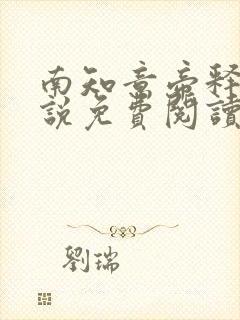 南知意帝释
說免費閱讀
劉瑞